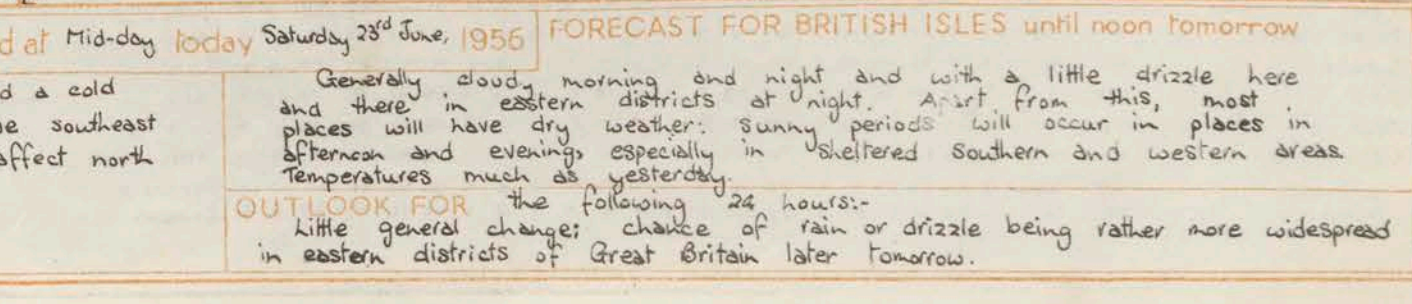 d at Mid-day today Saturday 23rd June, 1956
FORECAST FOR BRITISH ISLES until noon tomorrow
d a cold
e southeast
affect north
Generally cloudy morning and night and with a little drizzle here
and there in eastern districts at night. Apart from this, most
places will have dry weather: Sunny periods will occur in places in
afternoon and evening, especially in sheltered Southern and western areas.
Temperatures much as yesterday.
OUTLOOK FOR the following 24 hours:-
Little general change; chance of rain or drizzle being rather more widespread
in eastern districts of Great Britain later tomorrow.